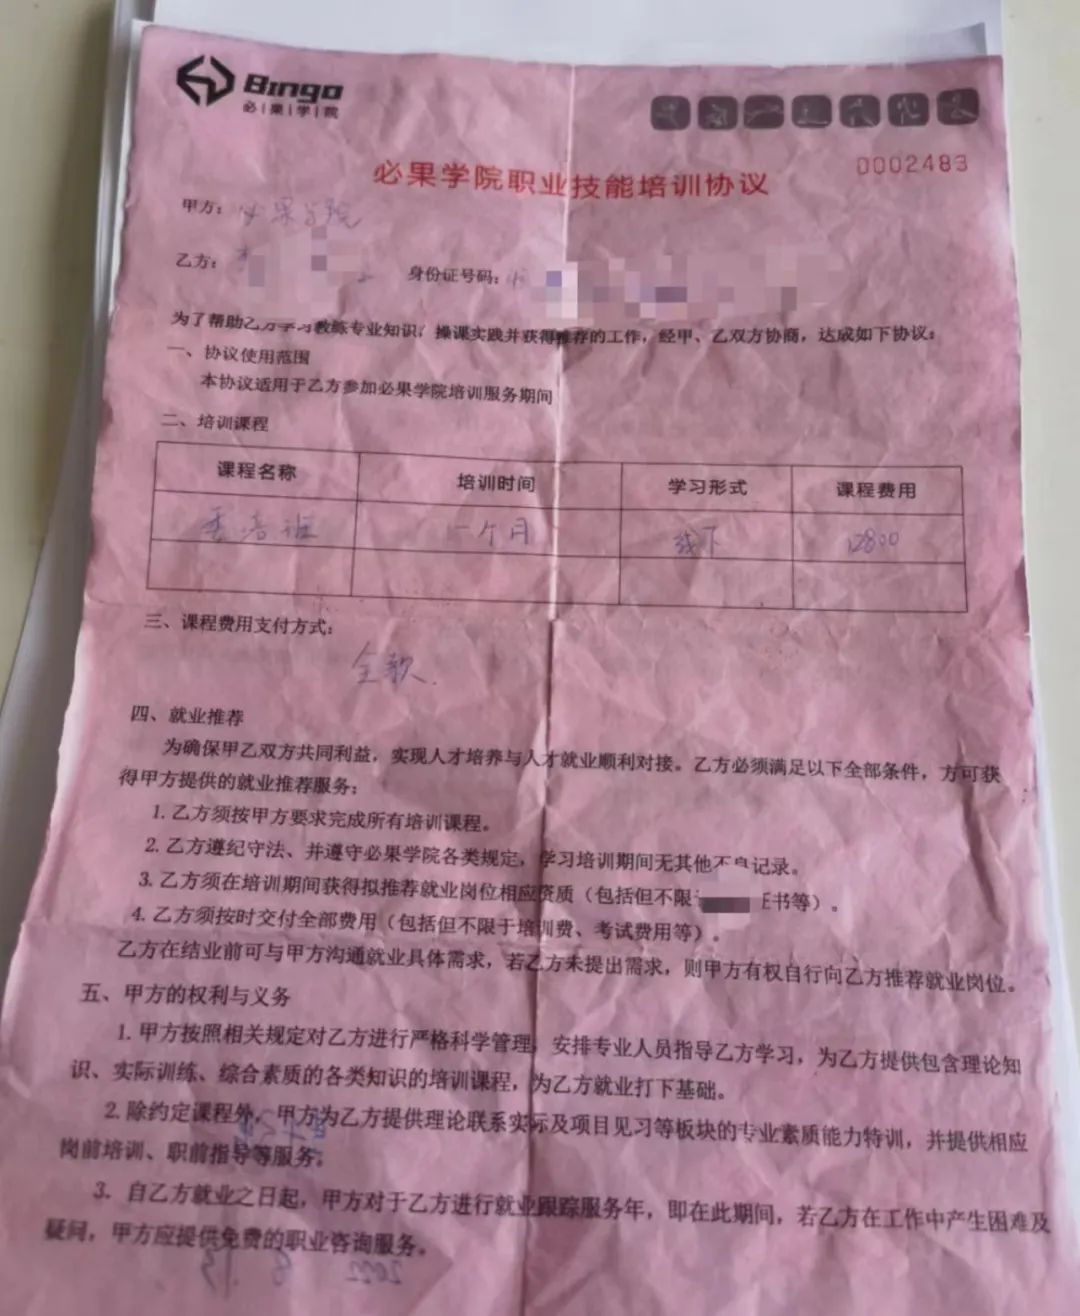 Bingo
必|果|学|院
0002483
必果学院职业技能培训协议
甲方：必果学院
乙方：
身份证号码：
为了帮助乙方学习教练专业知识，操课实践并获得推荐的工作，经甲、乙双方协商，达成如下协议：
一、协议使用范围
本协议适用于乙方参加必果学院培训服务期间
二、培训课程
课程名称 培训时间 学习形式 课程费用
委培班 一个月 线下 12800
三、课程费用支付方式：
全款.
四、就业推荐
为确保甲乙双方共同利益，实现人才培养与人才就业顺利对接。乙方必须满足以下全部条件，方可获
得甲方提供的就业推荐服务：
1. 乙方须按甲方要求完成所有培训课程。
2. 乙方遵纪守法、并遵守必果学院各类规定，学习培训期间无其他不良记录。
3. 乙方须在培训期间获得拟推荐就业岗位相应资质（包括但不限 证书等）。
4. 乙方须按时交付全部费用（包括但不限于培训费、考试费用等）。
乙方在结业前可与甲方沟通就业具体需求，若乙方未提出需求，则甲方有权自行向乙方推荐就业岗位。
五、甲方的权利与义务
1. 甲方按照相关规定对乙方进行严格科学管理，安排专业人员指导乙方学习，为乙方提供包含理论知
识、实际训练、综合素质的各类知识的培训课程，为乙方就业打下基础。
2. 除约定课程外，甲方为乙方提供理论联系实际及项目见习等板块的专业素质能力特训，并提供相应
岗前培训、职前指导等服务。
3. 自乙方就业之日起，甲方对于乙方进行就业跟踪服务年，即在此期间，若乙方在工作中产生困难及
疑问，甲方应提供免费的职业咨询服务。